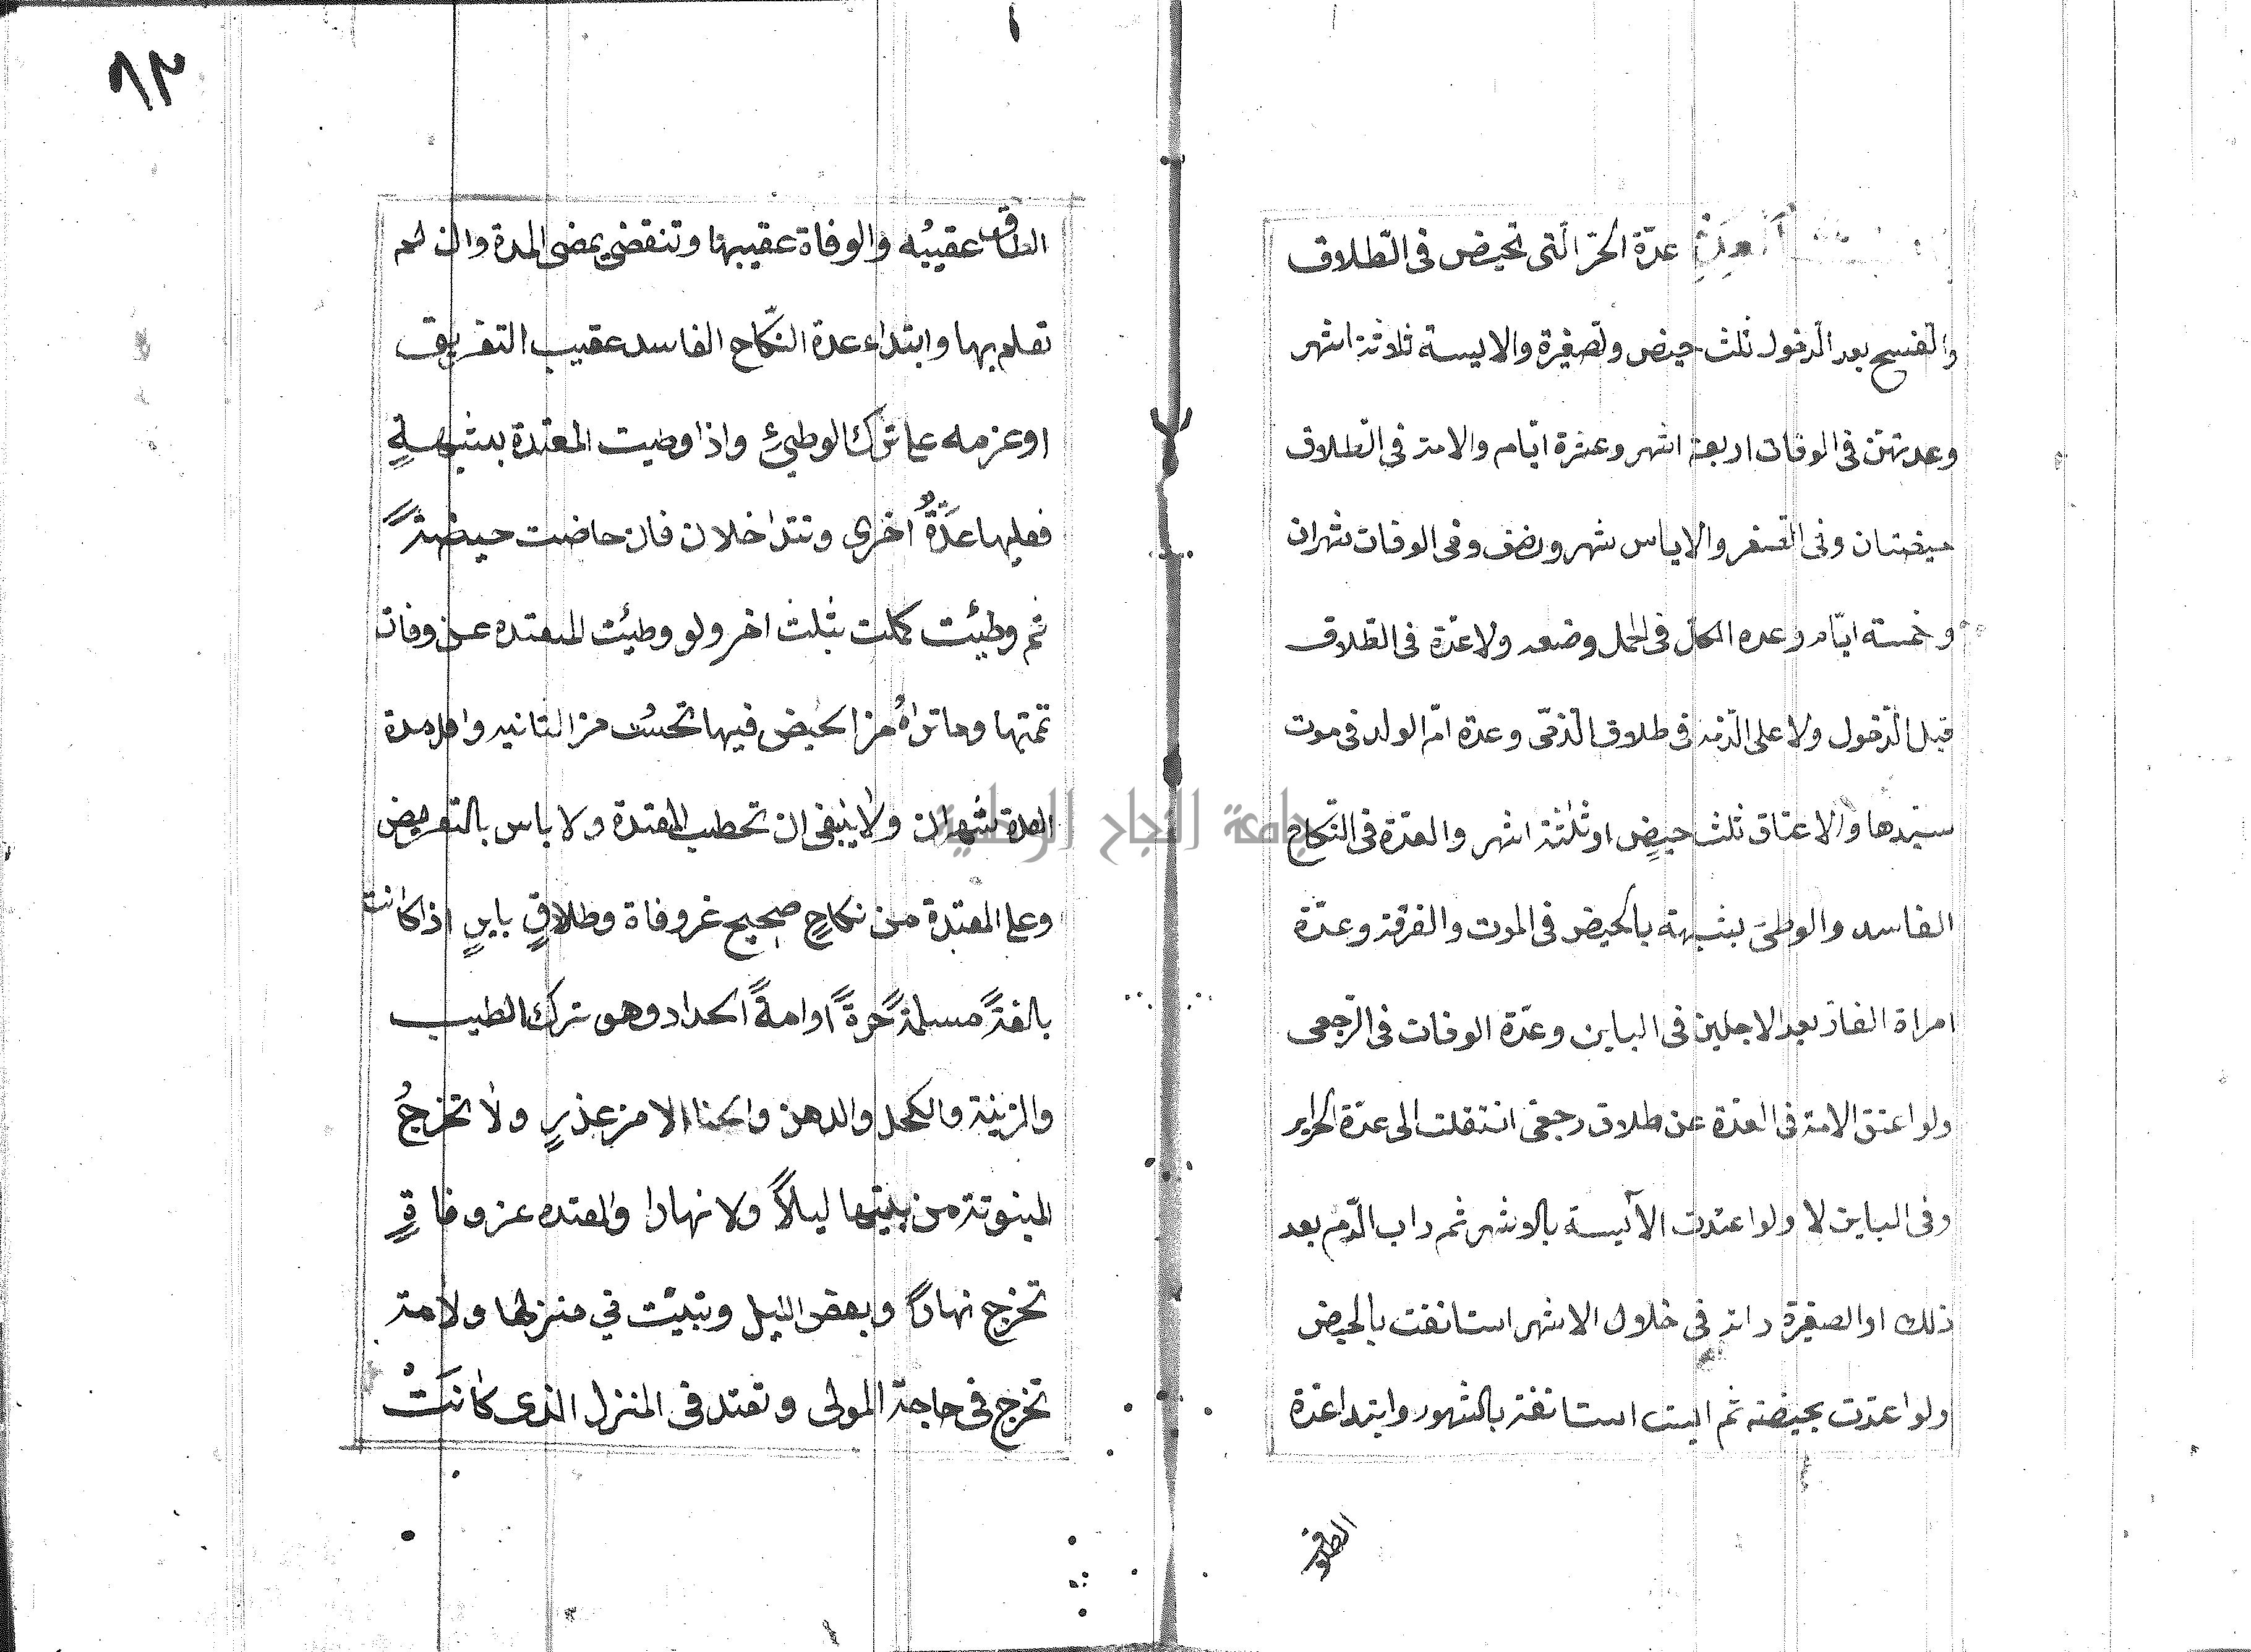 عدّة الحرّ الّتى تحيض فى الطّلاق
والفسح بعد الدّخول ثلث حيض ولصغيرة والايسة ثلاثة اشهر
وعدتهنّ فى الوفات اربعة اشهر وعشرة ايّام والامة فى الطّلاق
حيضتان وفى الصّغر والاياس شهر ونصف وفى الوفات شهران
وخمسة ايّام وعده الكلّ فى الحمل وضعه ولا عدّة فى الطّلاق
قبل الدّخول ولا على الذّمة فى طلاق الذّمّى وعدة امّ الولد فى موت
سيّدها والاعتاق ثلث حيض او ثلثة اشهر والعدّة فى النّكاح
الفاسد والوطئ بشبهة بالحيض فى الموت والفرقة وعدّة
امراة الفارّ بعد الاجلين فى الباين وعدّة الوفات فى الرّجعى
ولو اعتق الامة فى العدّة عن طلاق رجعى انتقلت الى عدّة الحراير
وفى الباين لا ولو اعتدت الآيسة بالاشهر ثم رات الدّم بعد
ذلك او الصغيرة راته فى خلال الاشهر استانفت بالحيض
ولو اعتدت بحيضة ثم ايست استانفة بالشهور وابتدا عدّة
الطلاق
٩٣
الطلاق عقيبُه والوفاة عقيبها وتنقضى بمضى المدة وان لم
تعلم بها وابتداء عدة النّكاح الفاسد عقيب التفريق
او عزمه على ترك الوطئ واذا وطيت المعتدة بشبهةٍ
فعليها عدَّةٌ اخرى وتتداخلان فان حاضت حيضةً
ثم وطيئت كملت بثلث اخر ولو وطيئت المعتده عن وفات
تمتها وما تراهُ من الحيض فيها تحسُب من الثانيه واقل مدة
العدة شهران ولا ينبغى ان تخطب المعتدة ولا باس بالتعريض
وعلى المعتدة من نكاحٍ صحيح عن وفاة وطلاقٍ باينٍ اذا كانت
بالغةً مسلمةً حرةً او امةً الحداد وهو ترك الطيب
والزينة والكحل والدهن والحنا الا من عذرٍ ولا تخرجُ
المبتوتة من بيتها ليلاً ولا نهارا والمعتده عن وفاةٍ
تخرج نهاراً وبعض الليل وتبيّت في منزلها ولامة
تخرج فى حاجة المولى وتعتد فى المنزل الذى كانَتْ
جامعة النجاح الوطنية